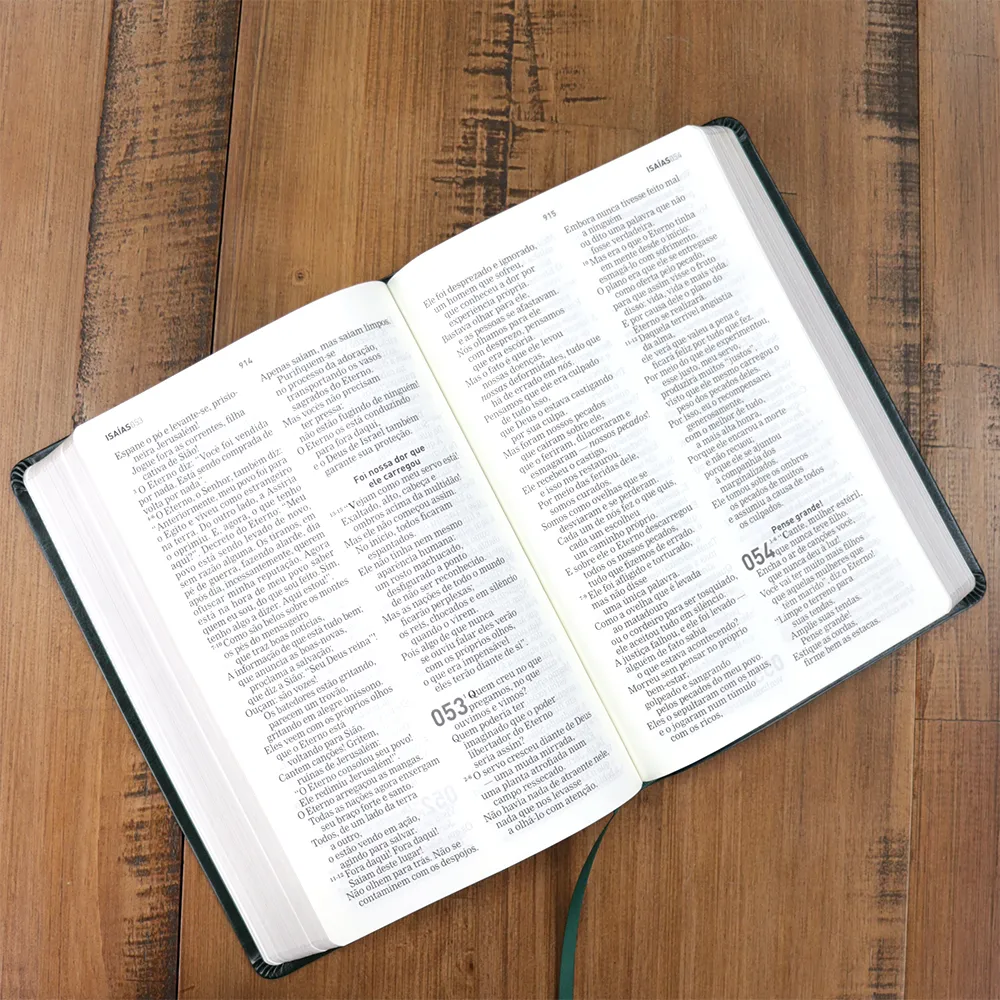 ISAÍAS053
914
Espane o pó e levante-se, prisio-
neira Jerusalém!
Jogue fora as correntes, filha
cativa de Sião!
3 O Eterno diz: "Você foi vendida
por nada. Está sendo comprada de
volta por nada".
4-6 O Eterno, o Senhor, também diz:
"Anteriormente meu povo foi para o
Egito e viveu como estrangeiro
na terra. Do outro lado, a Assíria
o oprimiu. E, agora, o que tenho
aqui?". Decreto do Eterno. "Meu
povo está sendo levado de novo,
sem razão alguma. Os tiranos, em
pé de guerra, fazendo alarde, dia
após dia, incessantemente, querem
ofuscar minha reputação. Agora
está na hora de meu povo saber
quem eu sou, do que sou feito. Sim:
tenho algo a dizer. Eu estou aqui!"
7-10 Como são belos sobre os montes
os pés do mensageiro
que traz boas notícias,
A informação de que está tudo bem:
que anuncia as boas-novas,
proclama a salvação,
que diz a Sião: "Seu Deus reina"!
Ouçam: são vozes!
Os batedores estão gritando,
parecem um trovão,
gritando em alegre uníssono.
Eles veem com os próprios olhos
que o Eterno está
voltando para Sião.
Cantem canções! Gritem,
ruínas de Jerusalém:
"O Eterno consolou seu povo!
Ele redimiu Jerusalém!".
O Eterno arregaçou as mangas.
Todas as nações agora enxergam
seu braço forte e santo.
Todos, de um lado da terra
a outro,
o estão vendo em ação,
agindo para salvar.
11-12 Fora daqui! Fora daqui!
Saiam deste lugar!
Não olhem para trás. Não se
contaminem com os despojos.
Apenas saiam, mas saiam limpos.
Purifiquem-se
no processo da adoração,
transportando os vasos
sagrados do Eterno.
Mas vocês não precisam
ter pressa:
não estão fugindo de ninguém!
O Eterno os está conduzindo
para fora daqui,
e o Deus de Israel também
garante sua proteção.
Foi nossa dor que
ele carregou
13-15 "Vejam como meu servo está!
Exaltado, alto, cabeça e
ombros acima da multidão!
Mas ele não começou assim.
No início, todos ficaram
espantados.
Ele não tinha nem mesmo
aparência humana,
um rosto machucado,
desfigurado a ponto
de não ser reconhecido.
Mas as nações de todo o mundo
ficarão perplexas;
os reis, chocados e em silêncio
quando o virem.
Pois algo de que nunca
se ouviu falar eles verão
com os próprios olhos,
o que era impensável,
eles terão diante de si".
053 1 Quem creu no que
pregamos, no que
ouvimos e vimos?
Quem poderia ter
imaginado que o poder
libertador do Eterno
seria assim?
2-6 O servo cresceu diante de Deus
— uma muda mirrada,
uma planta atrofiada num
campo ressecado.
Não havia nada de atraente nele,
nada que nos levasse
a olhá-lo com atenção.
915
ISAÍAS054
Ele foi desprezado e ignorado,
um homem que sofreu,
que conheceu a dor por
experiência própria.
Bastava olhar para ele,
e as pessoas se afastavam.
Nós olhamos para ele
com desprezo, pensamos
que era escória.
Mas o fato é que ele levou
nossas doenças,
nossas deformidades, tudo que
há de errado em nós.
Pensamos que ele era culpado
de tudo isso,
que Deus o estava castigando
por sua culpa.
Mas foram nossos pecados
que caíram sobre ele,
que o feriram, dilaceraram e
esmagaram — nossos pecados!
Ele recebeu o castigo,
e isso nos restaurou.
Por meio das feridas dele,
somos curados.
Somos como ovelhas que se
desviaram e se perderam.
Cada um de nós fez o que quis,
um escolheu o
um caminho próprio.
E sobre ele o Eterno descarregou
todos os nossos pecados,
tudo que fizemos de errado.
7-9 Ele foi aflito e torturado,
mas não disse
uma única palavra.
Como a ovelha que é levada
ao matadouro
ou o cordeiro para ser tosquiado,
ele aceitou tudo em silêncio.
A justiça falhou, e ele foi levado —
alguém de fato sabia
o que estava acontecendo?
Morreu sem pensar no próprio
bem-estar,
golpeado e sangrando
pelos pecados do meu povo.
Eles o sepultaram com os maus,
e o jogaram num túmulo
com os ricos,
Embora nunca tivesse feito mal
a ninguém
ou dito uma palavra que não
fosse verdadeira.
10 Mas era o que o Eterno tinha
em mente desde o início:
esmagá-lo com sofrimento.
O plano era que ele se entregasse
como oferta pelo pecado,
para que assim visse o fruto
disso: vida, vida e mais vida.
E por causa dele o plano do
Eterno se realizará.
11-12 Daquela terrível angústia
da alma,
ele verá que valeu a pena e
ficará feliz por tudo que fez.
Por meio do que ele experimentou,
meu justo, meu servo,
produzirá muitos "justos"
visto que ele mesmo carregou o
peso dos pecados deles.
Por isso, eu o recompensarei
generosamente,
com o melhor de tudo,
a mais alta honra,
Porque ele encarou a morte
e não recuou,
porque ele se ajuntou
à companhia dos
marginalizados.
Ele tomou sobre os ombros
os pecados de muitos
e assumiu a causa de todos
os culpados.
Pense grande!
054 1-6 "Cante, mulher estéril,
que nunca teve filho.
Encha o ar de canções você,
que nunca deu à luz.
Você vai ter muito mais filhos
que aquelas mulheres que
têm marido", diz o Eterno!
"Limpe o terreno para
suas tendas.
Amplie suas tendas.
Pense grande!
Estique as cordas,
firme bem as estacas.